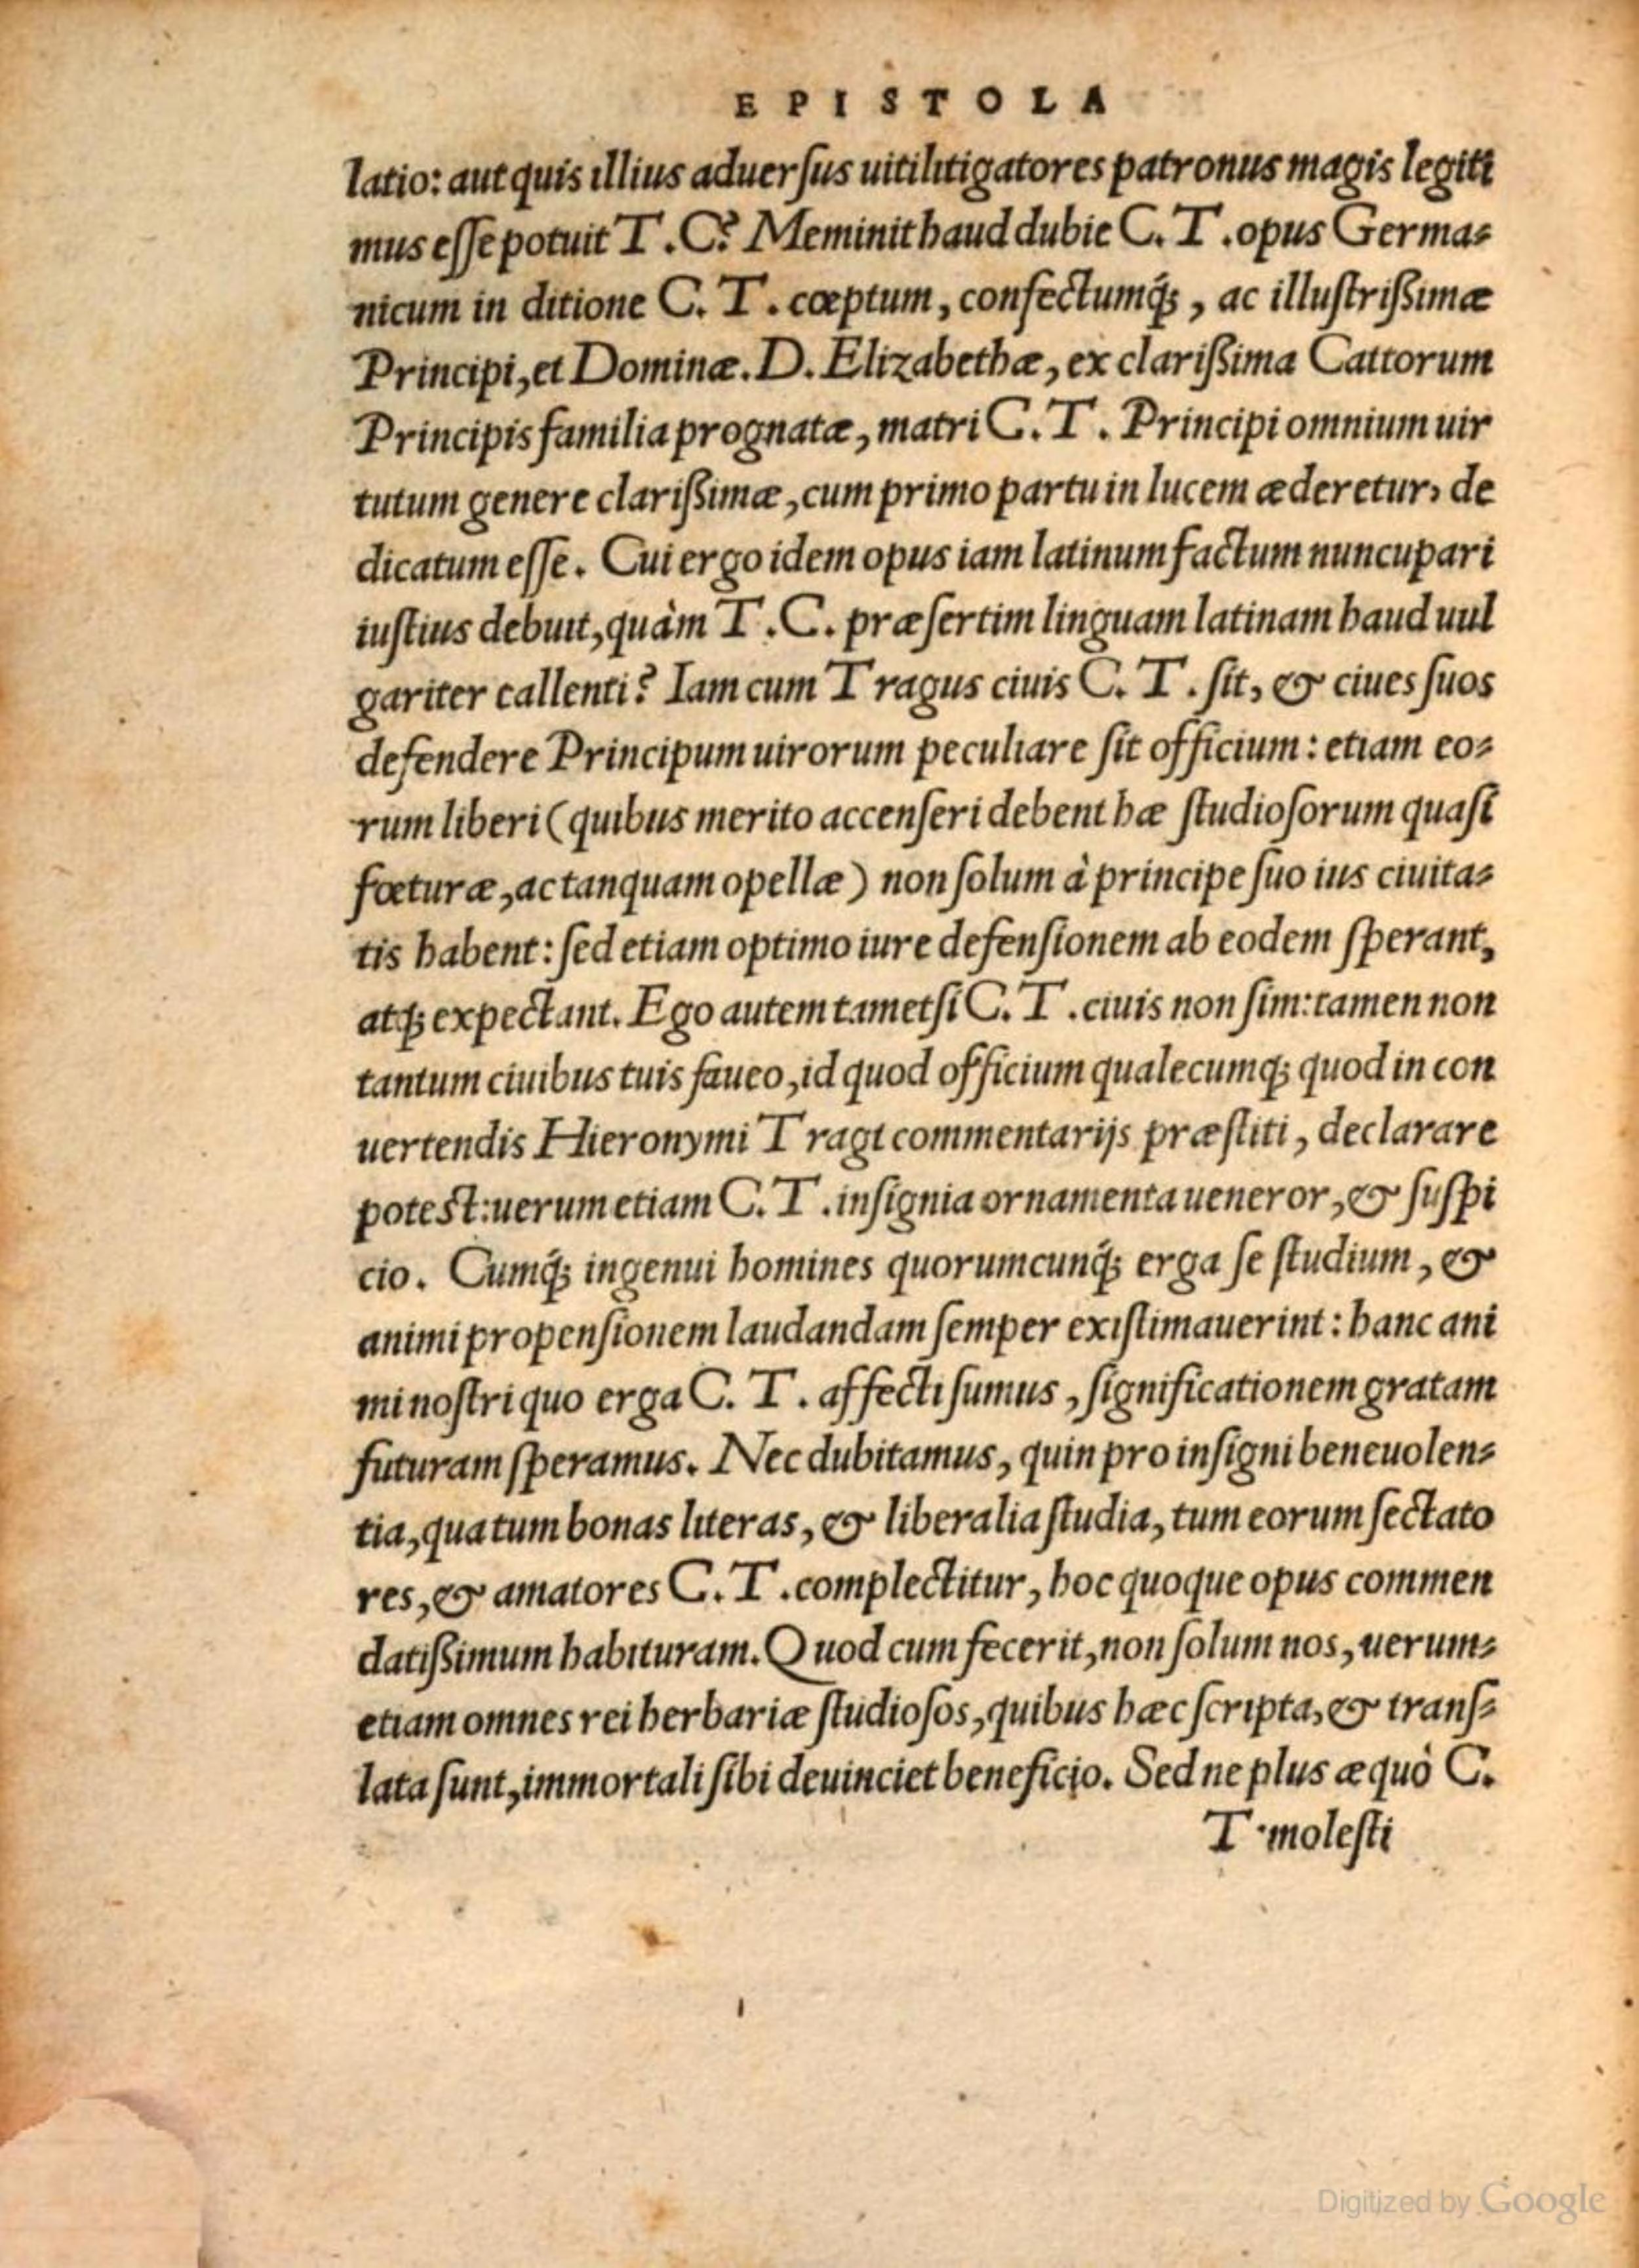 EPISTOLA
latio: aut quis illius aduerſus uitilitigatores patronus magis legiti
mus eſſe potuit T. C? Meminit haud dubie C. T. opus Germa-
nicum in ditione C. T. cœptum, confectumq́;, ac illuſtriſsimæ
Principi, et Dominæ. D. Elizabethæ, ex clariſsima Cattorum
Principis familia prognatæ, matri C. T. Principi omnium uir
tutum genere clariſsimæ, cum primo partu in lucem æderetur, de
dicatum eſſe. Cui ergo idem opus iam latinum factum nuncupari
iuſtius debuit, quàm T. C. præſertim linguam latinam haud uul
gariter callenti? Iam cum Tragus ciuis C. T. ſit, & ciues ſuos
defendere Principum uirorum peculiare ſit officium: etiam eo-
rum liberi (quibus merito accenſeri debent hæ ſtudioſorum quaſi
fœturæ, ac tanquam opellæ) non ſolum à principe ſuo ius ciuita-
tis habent: ſed etiam optimo iure defenſionem ab eodem ſperant,
atq; expectant. Ego autem tametſi C. T. ciuis non ſim: tamen non
tantum ciuibus tuis faueo, id quod officium qualecumq; quod in con
uertendis Hieronymi Tragi commentarijs præſtiti, declarare
poteſt: uerum etiam C. T. inſignia ornamenta ueneror, & ſuſpi
cio. Cumq́; ingenui homines quorumcunq́; erga ſe ſtudium, &
animi propenſionem laudandam ſemper exiſtimauerint: hanc ani
mi noſtri quo erga C. T. affecti ſumus, ſignificationem gratam
futuram ſperamus. Nec dubitamus, quin pro inſigni beneuolen-
tia, qua tum bonas literas, & liberalia ſtudia, tum eorum ſectato
res, & amatores C. T. complectitur, hoc quoque opus commen
datiſsimum habituram. Quod cum fecerit, non ſolum nos, uerum-
etiam omnes rei herbariæ ſtudioſos, quibus hæc ſcripta, & tranſ-
lata ſunt, immortali ſibi deuinciet beneficio. Sed ne plus æquò C.
T. moleſti
Digitized by Google